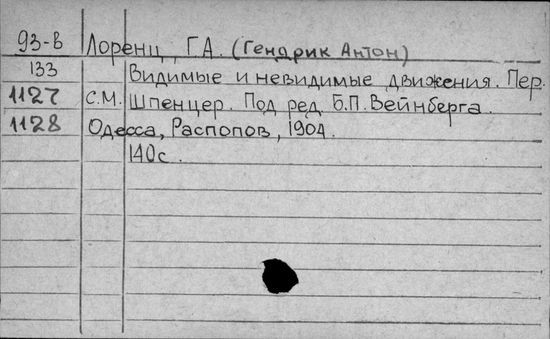 93-В Лоренц, Г.А. (Гендрик Антон)
133 Видимые и невидимые движения. Пер.
1127 С.М. Шпенцер. Под ред. Б.П. Вейнберга.
1128 Одесса, Распопов, 1904.
140с.